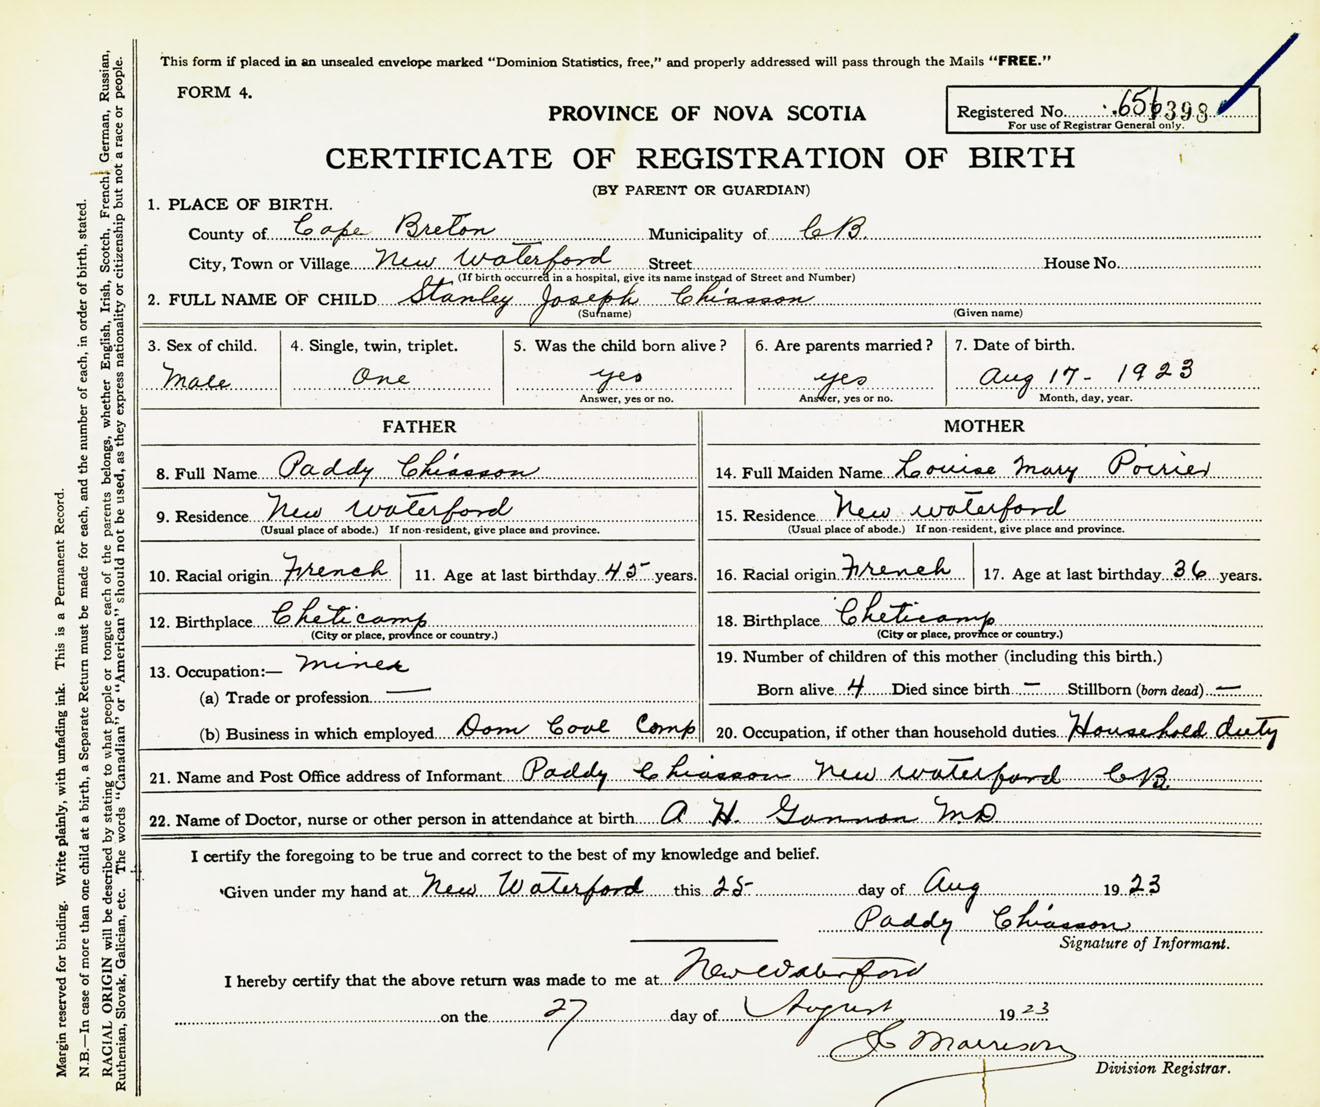 This form if placed in an unsealed envelope marked "Dominion Statistics, free," and properly addressed will pass through the Mails "FREE."
FORM 4.
PROVINCE OF NOVA SCOTIA
Registered No. 398
For use of Registrar General only.
CERTIFICATE OF REGISTRATION OF BIRTH
(BY PARENT OR GUARDIAN)
1. PLACE OF BIRTH.
County of Cape Breton Municipality of CB.
City, Town or Village New Waterford Street House No.
(If birth occurred in a hospital, give its name instead of Street and Number)
2. FULL NAME OF CHILD Stanley Joseph Chiasson
(Surname) (Given name)
3. Sex of child. 4. Single, twin, triplet. 5. Was the child born alive? 6. Are parents married? 7. Date of birth.
Male One yes yes Aug 17 - 1923
Answer, yes or no. Answer, yes or no. Month, day, year.
FATHER MOTHER
8. Full Name Paddy Chiasson 14. Full Maiden Name Louise Mary Poirier
9. Residence New Waterford 15. Residence New Waterford
(Usual place of abode.) If non-resident, give place and province. (Usual place of abode.) If non-resident, give place and province.
10. Racial origin French 11. Age at last birthday 45 years. 16. Racial origin French 17. Age at last birthday 36 years.
12. Birthplace Cheticamp 18. Birthplace Cheticamp
(City or place, province or country.) (City or place, province or country.)
13. Occupation:— Miner 19. Number of children of this mother (including this birth.)
(a) Trade or profession — Born alive 4 Died since birth — Stillborn (born dead) —
(b) Business in which employed Dom Coal Comp 20. Occupation, if other than household duties Household duty
21. Name and Post Office address of Informant Paddy Chiasson New Waterford CB.
22. Name of Doctor, nurse or other person in attendance at birth A H. Gannon MD
I certify the foregoing to be true and correct to the best of my knowledge and belief.
Given under my hand at New Waterford this 25 day of Aug 1923
Paddy Chiasson
Signature of Informant.
I hereby certify that the above return was made to me at New Waterford
on the 27 day of August 1923
Morrison
Division Registrar.
Margin reserved for binding. Write plainly, with unfading ink. This is a Permanent Record.
N.B.—In case of more than one child at a birth, a Separate Return must be made for each, and the number of each, in order of birth, stated.
RACIAL ORIGIN will be described by stating to what people or tongue each of the parents belongs, whether English, Irish, Scotch, French, German, Russian,
Ruthenian, Slovak, Galician, etc. The words "Canadian" or "American" should not be used, as they express nationality or citizenship but not a race or people.